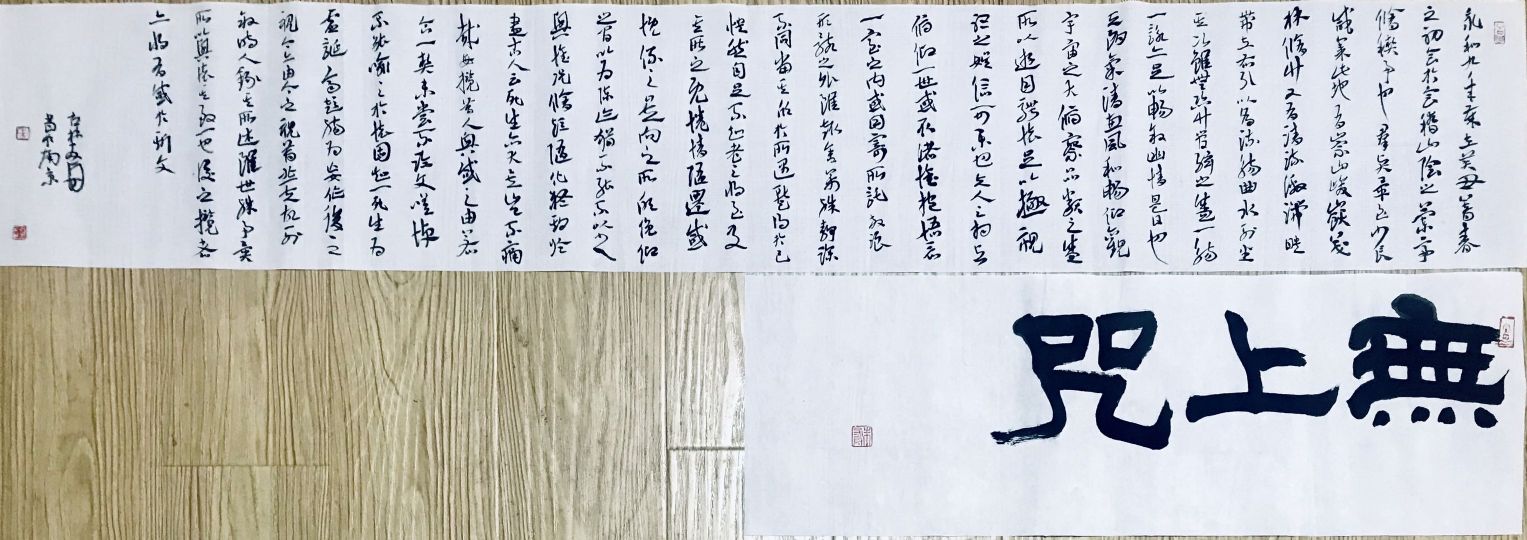 永和九年歲在癸丑暮春
之初會於會稽山陰之蘭亭
脩稧事也羣賢畢至少長
咸集此地有崇山峻嶺茂
林脩竹又有清流激湍映
帶左右引以為流觴曲水列坐
其次雖無絲竹管弦之盛一觴
一詠亦足以暢敘幽情是日也
天朗氣清惠風和暢仰觀
宇宙之大俯察品類之盛
所以遊目騁懷足以極視
聽之娛信可樂也夫人之相與
俯仰一世或取諸懷抱悟言
一室之內或因寄所託放浪
形骸之外雖趣舍萬殊靜躁
不同當其欣於所遇暫得於己
怏然自足不知老之將至及
其所之既惓情隨遷感
慨係之矣向之所欣俛仰
之間以為陳迹猶不能不以之
興懷況脩短隨化終期於
盡古人云死生亦大矣豈不痛
哉每攬昔人興感之由若
合一契未嘗不臨文嗟悼
不能喻之於懷固知一死生為
虛誕齊彭殤為妄作後之
視今亦由今之視昔悲夫故列
敘時人錄其所述雖世殊事異
所以興懷其致一也後之攬者
亦將有感於斯文
書於南京
無上咒